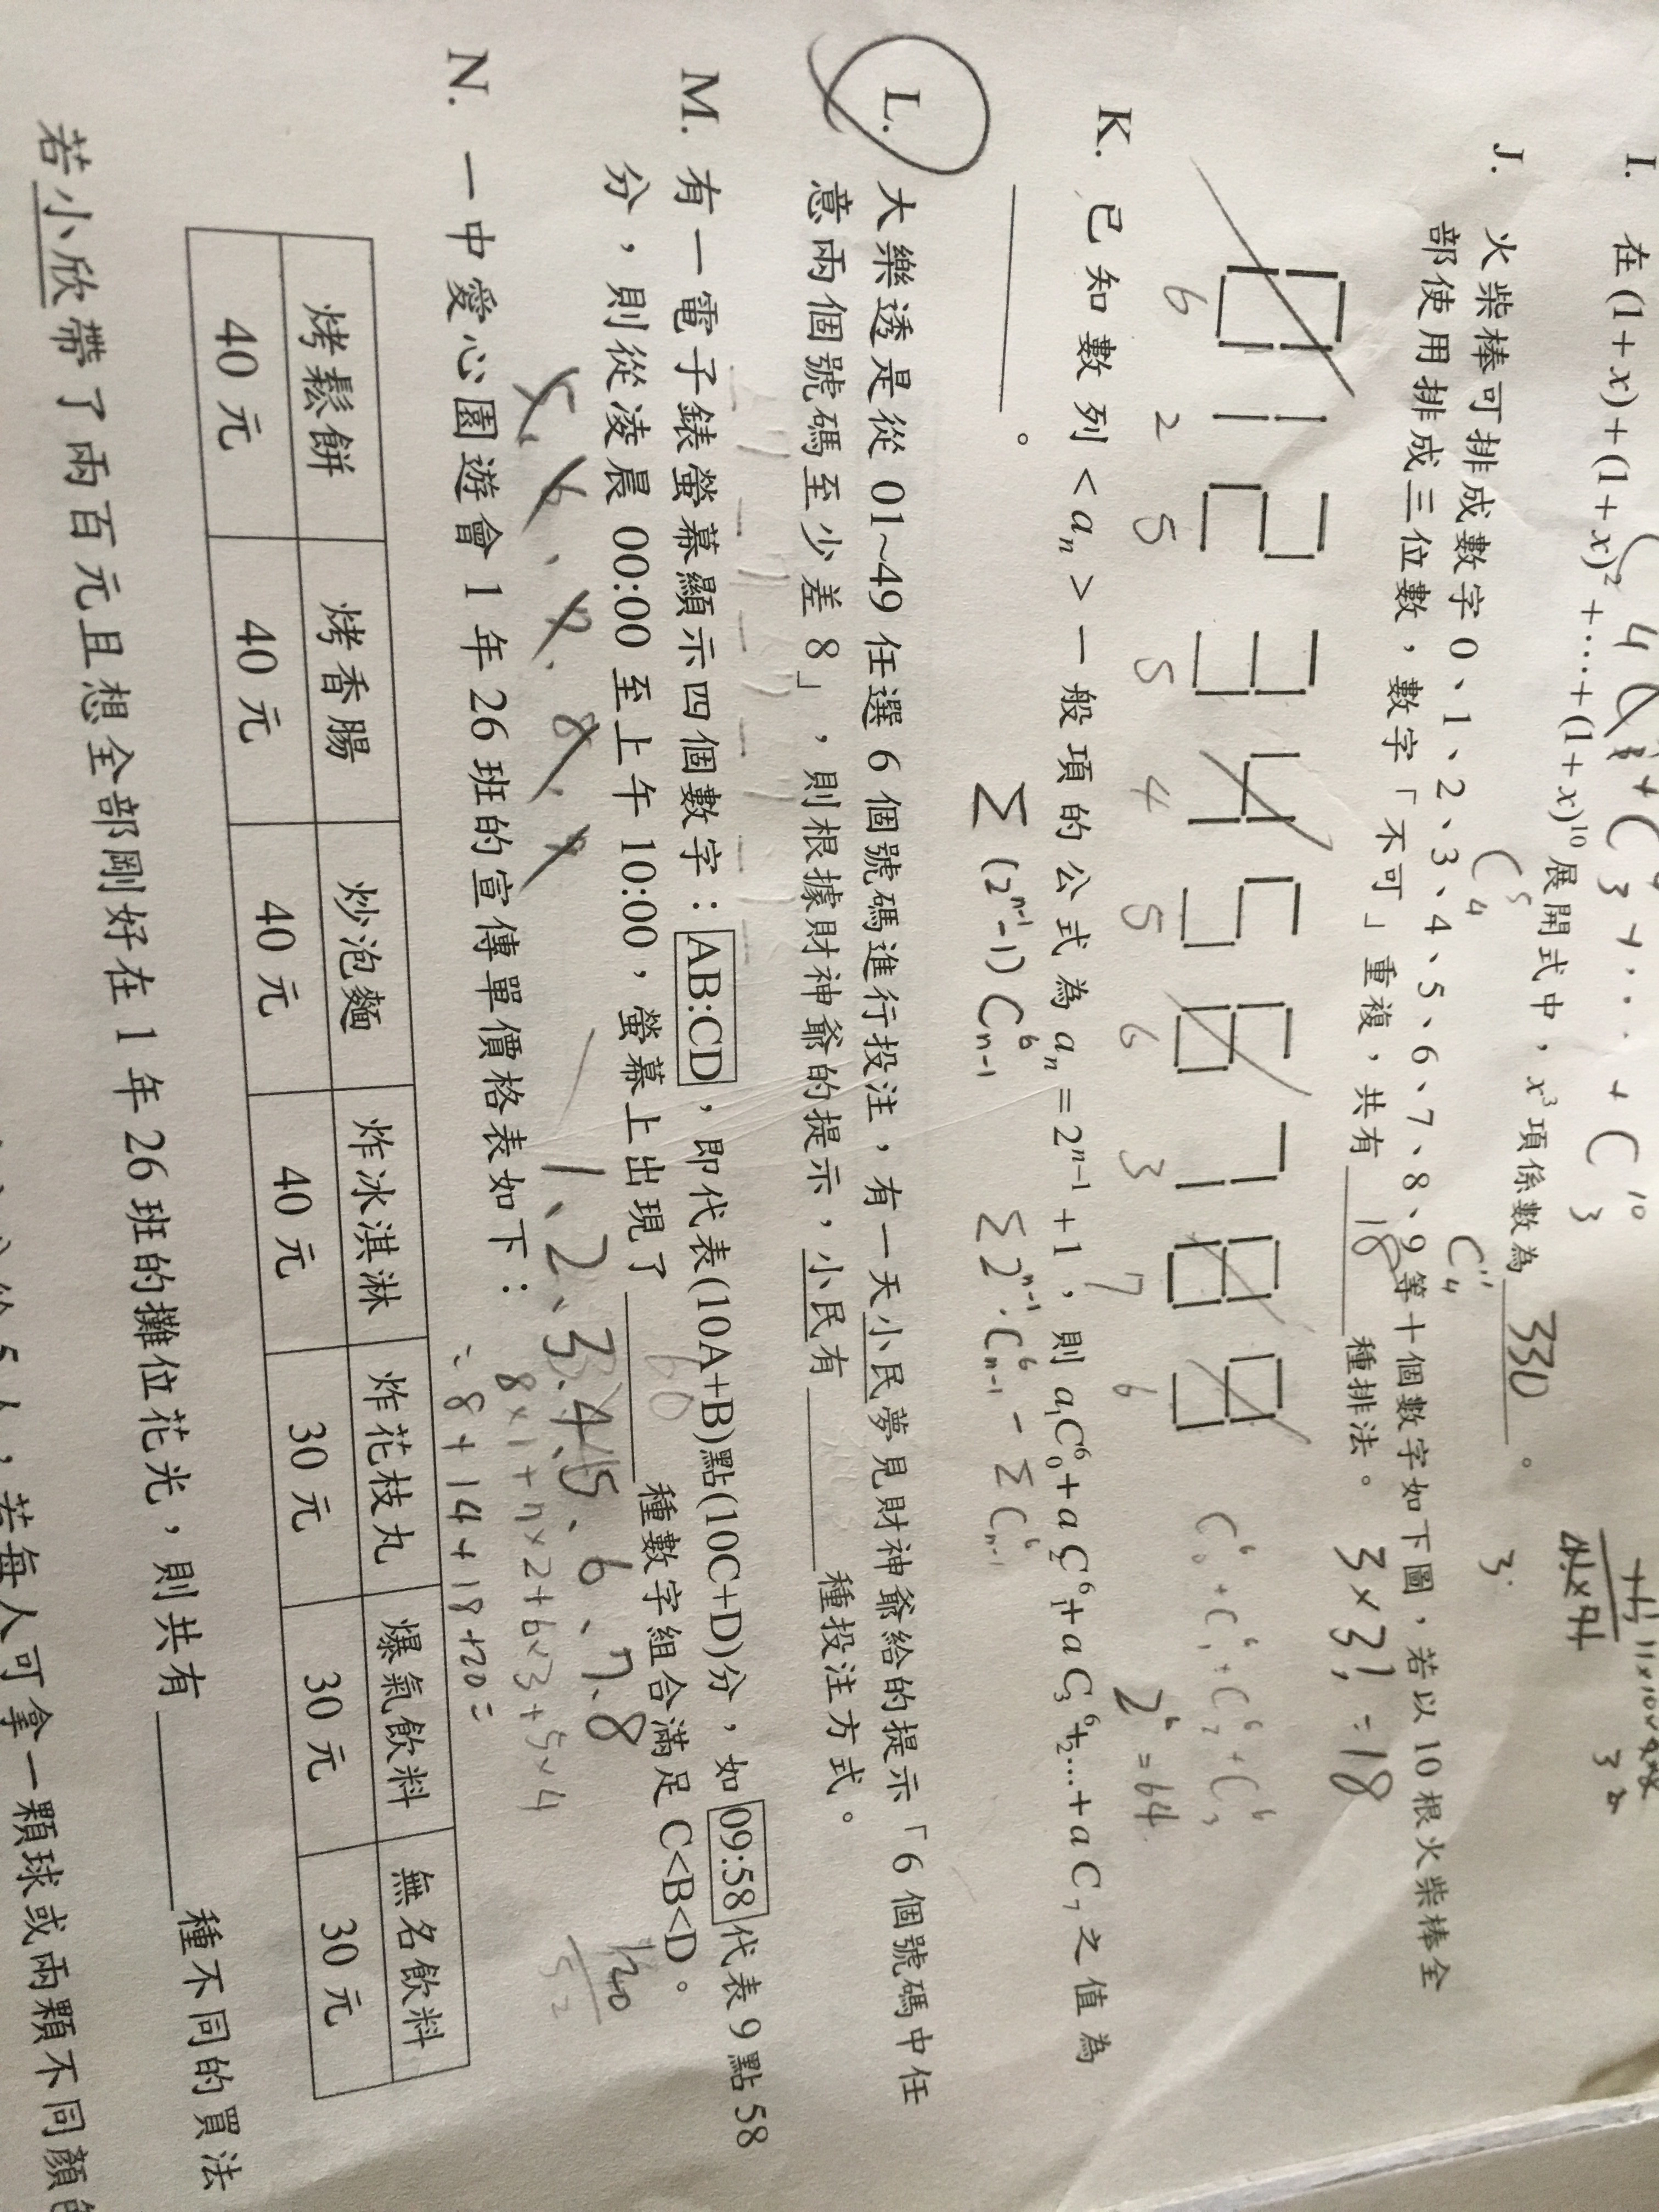 I. 在(1+x)+(1+x)²+⋯+(1+x)¹⁰展開式中,x³項係數為 330 。
J. 火柴棒可排成數字0、1、2、3、4、5、6、7、8、9等十個數字如下圖,若以10根火柴棒全
部使用排成三位數,數字「不可」重複,共有 18 種排法。
3×3! = 18
6 2 5 5 4 5 6 3 7 6
2⁶=64
K. 已知數列<aₙ>一般項的公式為aₙ=2ⁿ⁻¹+1,則a₁C⁶₀+a₂C⁶₁+a₃C⁶₂+...+a₇C⁶₆之值為
。
Σ(2ⁿ⁻¹-1)C⁶ₙ₋₁
Σ2ⁿ⁻¹·C⁶ₙ₋₁ - ΣC⁶ₙ₋₁
L. 大樂透是從01~49任選6個號碼進行投注,有一天小民夢見財神爺給的提示「6個號碼中任
意兩個號碼至少差8」,則根據財神爺的提示,小民有 種投注方式。
M. 有一電子錶螢幕顯示四個數字:AB:CD,即代表(10A+B)點(10C+D)分,如09:58代表9點58
分,則從凌晨00:00至上午10:00,螢幕上出現了 種數字組合滿足C<B<D。
1、2、3、4、5、6、7、8
8×1+7×2+6×3+5×4
8+14+18+20=
N. 一中愛心園遊會1年26班的宣傳單價格表如下:
烤鬆餅 烤香腸 炒泡麵 炸冰淇淋 炸花枝丸 爆氣飲料 無名飲料
40元 40元 40元 40元 30元 30元 30元
若小欣帶了兩百元且想全部剛好在1年26班的攤位花光,則共有 種不同的買法
若每人可拿一顆球或兩顆不同顏